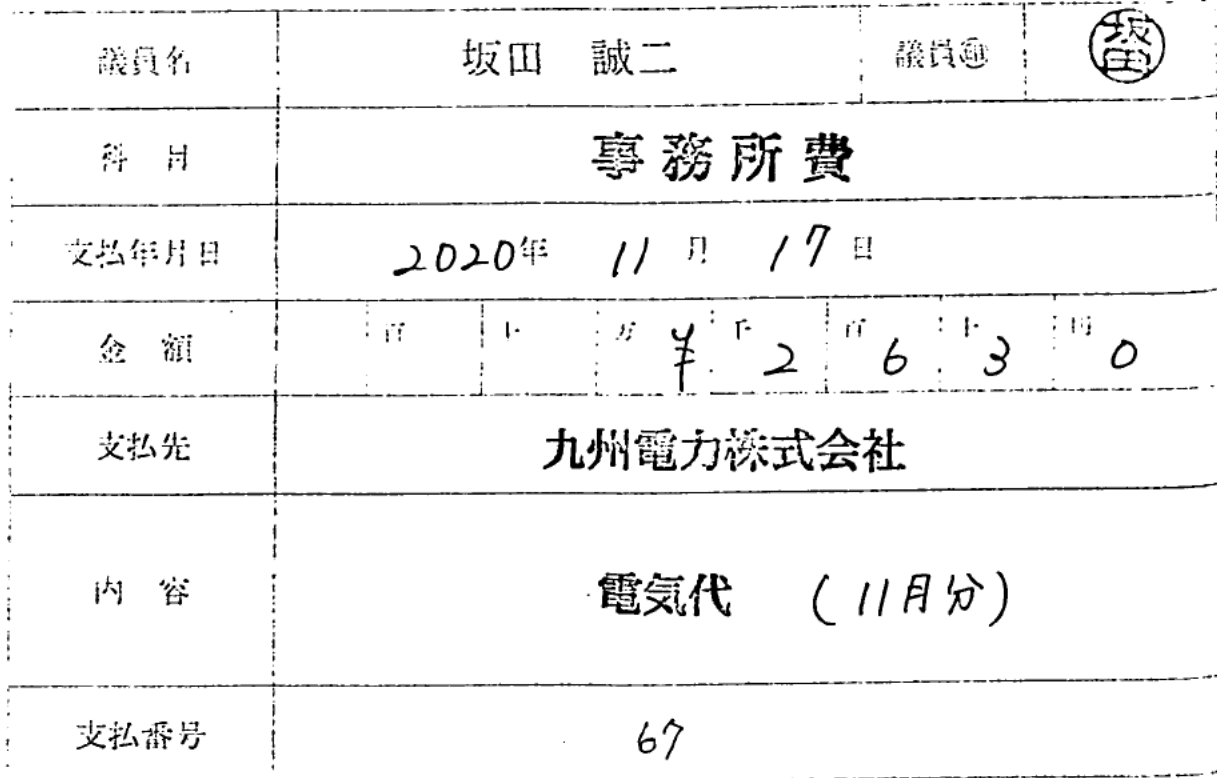 議員名 坂田 誠二 議員㊞ 坂田
科 目 事務所費
支払年月日 2020年 11月 17日
金 額 百 十 万 ¥ 千 2 百 6 十 3 円 0
支払先 九州電力株式会社
内 容 電気代 (11月分)
支払番号 67